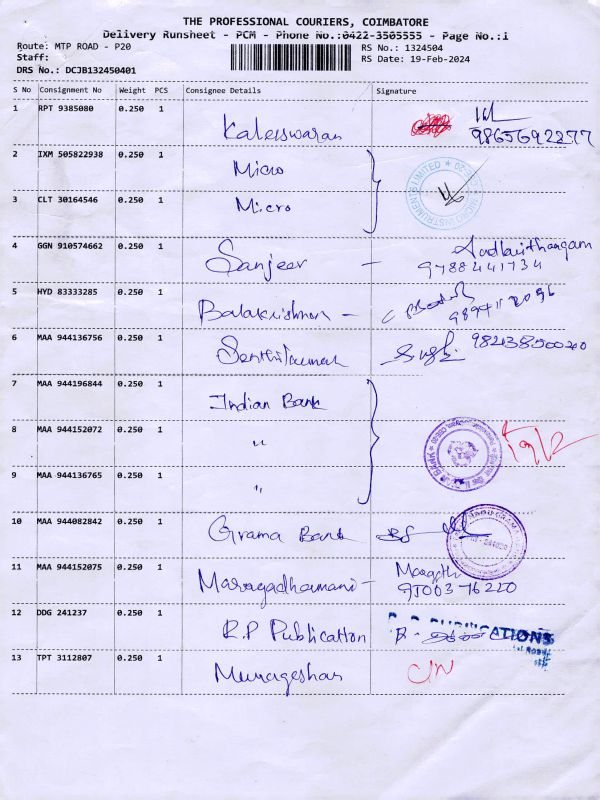 THE PROFESSIONAL COURIERS, COIMBATORE
Delivery Runsheet - PCM - Phone No.:0422-3505555 - Page No.:1
Route: MTP ROAD - P20
RS No.: 1324504
Staff:
RS Date: 19-Feb-2024
DRS No.: DCJB132450401
S No Consignment No Weight PCS Consignee Details Signature
1 RPT 9385080 0.250 1 Kaleiswaran
9865692277
2 IXM 505822938 0.250 1 Micro
3 CLT 30164546 0.250 1 Micro
4 GGN 910574662 0.250 1 Sanjeev -
9788441734
5 HYD 83333285 0.250 1 Balakrishnan -
6 MAA 944136756 0.250 1 Senthilkumar
7 MAA 944196844 0.250 1 Indian Bank
8 MAA 944152072 0.250 1 "
9 MAA 944136765 0.250 1 "
10 MAA 944082842 0.250 1 Grama Bank
11 MAA 944152075 0.250 1 Maragadhamani -
97003-76220
12 DDG 241237 0.250 1 R.P Publication
13 TPT 3112807 0.250 1 Murugeshan